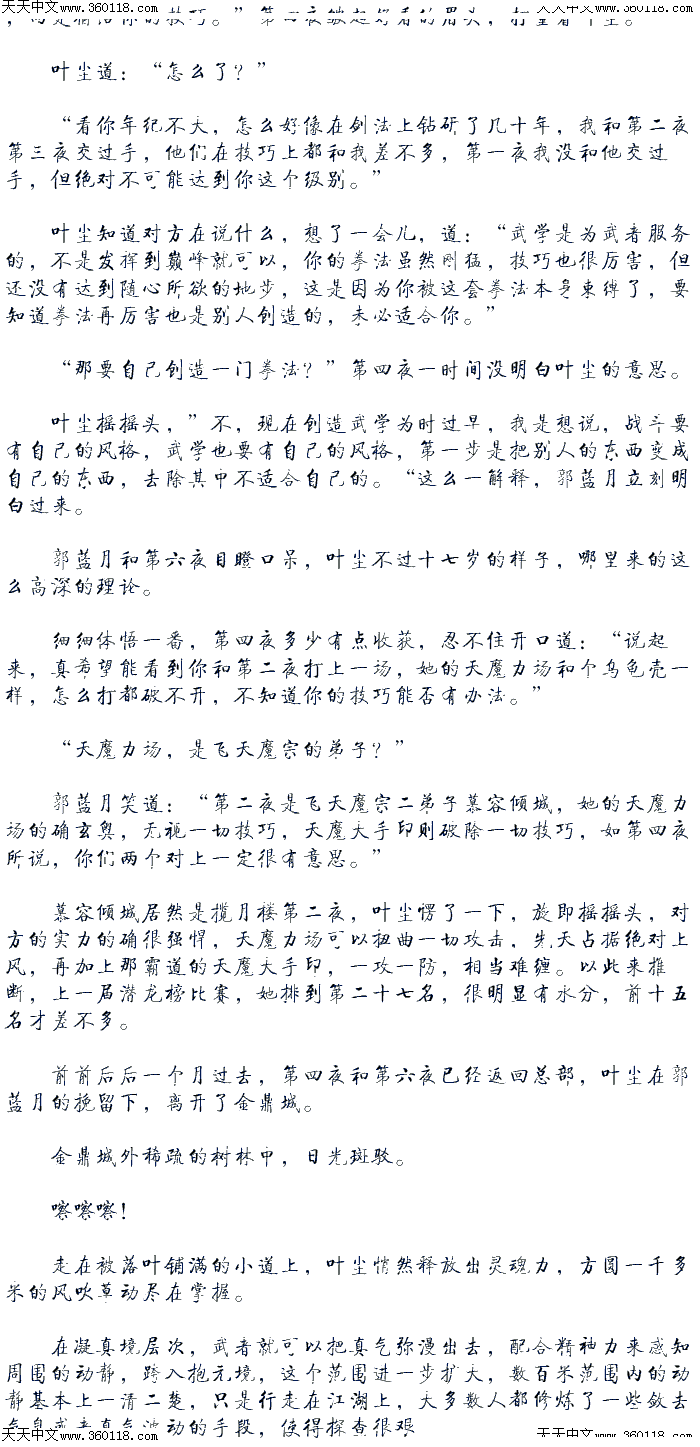 天天中文www.360118.com 天天中文www.360118.com
的技巧。”第四夜皱起好看的眉头，打量着叶尘。
叶尘道：“怎么了？”
“看你年纪不大，怎么好像在剑法上钻研了几十年，我和第二夜
第三夜交过手，他们在技巧上都和我差不多，第一夜我没和他交过
手，但绝对不可能达到你这个级别。”
叶尘知道对方在说什么，想了一会儿，道：“武学是为武者服务
的，不是发挥到巅峰就可以，你的拳法虽然刚猛，技巧也很厉害，但
还没有达到随心所欲的地步，这是因为你被这套拳法本身束缚了，要
知道拳法再厉害也是别人创造的，未必适合你。”
“那要自己创造一门拳法？”第四夜一时间没明白叶尘的意思。
叶尘摇摇头，”不，现在创造武学为时过早，我是想说，战斗要
有自己的风格，武学也要有自己的风格，第一步是把别人的东西变成
自己的东西，去除其中不适合自己的。“这么一解释，郭蓝月立刻明
白过来。
郭蓝月和第六夜目瞪口呆，叶尘不过十七岁的样子，哪里来的这
么高深的理论。
细细体悟一番，第四夜多少有点收获，忍不住开口道：“说起
来，真希望能看到你和第二夜打上一场，她的天魔力场和个乌龟壳一
样，怎么打都破不开，不知道你的技巧能否有办法。”
“天魔力场，是飞天魔宗的弟子？”
郭蓝月笑道：“第二夜是飞天魔宗二弟子慕容倾城，她的天魔力
场的确玄奥，无视一切技巧，天魔大手印则破除一切技巧，如第四夜
所说，你们两个对上一定很有意思。”
慕容倾城居然是揽月楼第二夜，叶尘愣了一下，旋即摇摇头，对
方的实力的确很强悍，天魔力场可以扭曲一切攻击，先天占据绝对上
风，再加上那霸道的天魔大手印，一攻一防，相当难缠。以此来推
断，上一届潜龙榜比赛，她排到第二十七名，很明显有水分，前十五
名才差不多。
前前后后一个月过去，第四夜和第六夜已经返回总部，叶尘在郭
蓝月的挽留下，离开了金鼎城。
金鼎城外稀疏的树林中，日光斑驳。
嚓嚓嚓！
走在被落叶铺满的小道上，叶尘悄然释放出灵魂力，方圆一千多
米的风吹草动尽在掌握。
在凝真境层次，武者就可以把真气弥漫出去，配合精神力来感知
周围的动静，跨入抱元境，这个范围进一步扩大，数百米范围内的动
静基本上一清二楚，只是行走在江湖上，大多数人都修炼了一些敛去
气息或者真气波动的手段，使得探查很艰
天天中文www.360118.com 天天中文www.360118.com